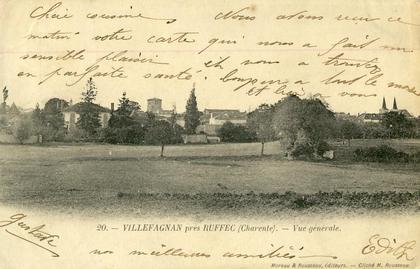 Chère cousine Nous avons reçu ce
matin votre carte qui nous a fait un
sensible plaisir et nous a trouvé
en parfaite santé. bonjour a tout le monde
et a vous
20. — VILLEFAGNAN près RUFFEC (Charente). — Vue générale.
Gustave nos meilleures amitiés Edith
Moreau & Rousseau, Éditeurs. — Cliché M. Rousseau